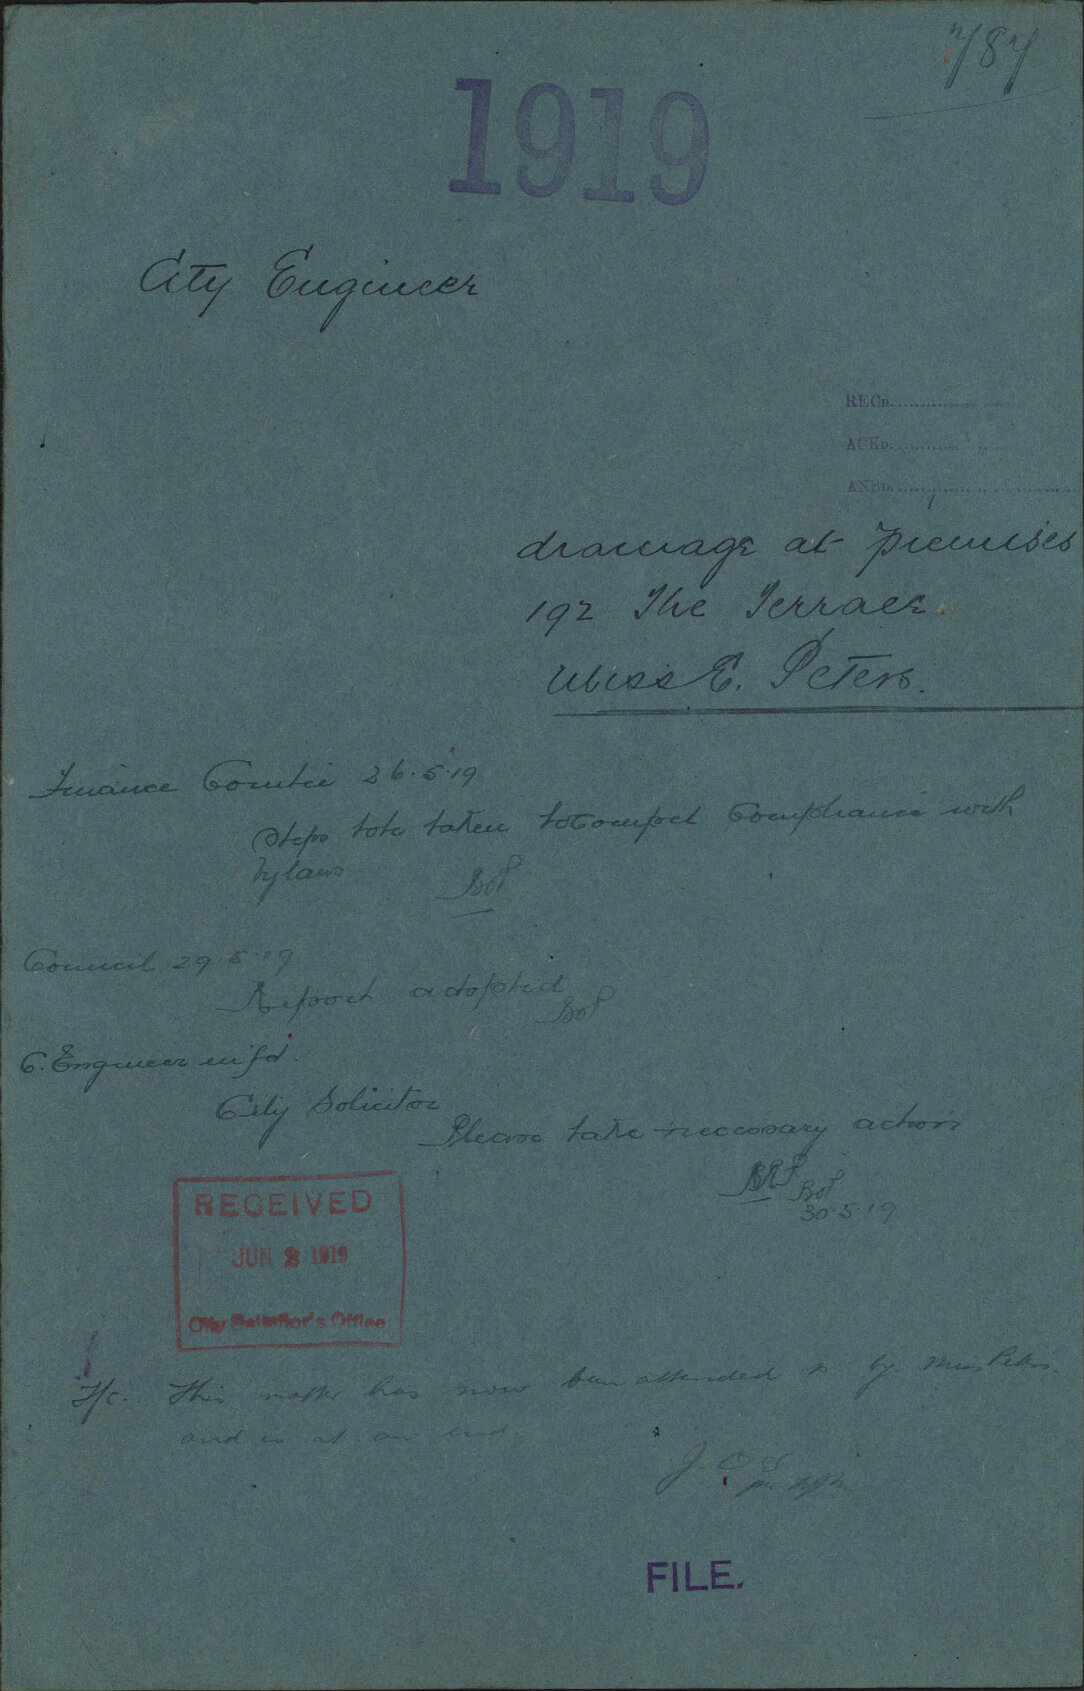 787
1919
City Engineer
RECD.
ACKD.
ANSD.
drainage at premises
192 The Terrace.
Miss E. Peters.
Finance Comtee 26.5.19
Steps to be taken to compel compliance with
bylaws
Council 29.5.19
Report adopted
C. Engineer infd.
City Solicitor
Please take necessary action
30.5.19
RECEIVED
JUN 3 1919
City Solicitor's Office
This matter has now been attended to by Miss Peters
and is at an end.
FILE.